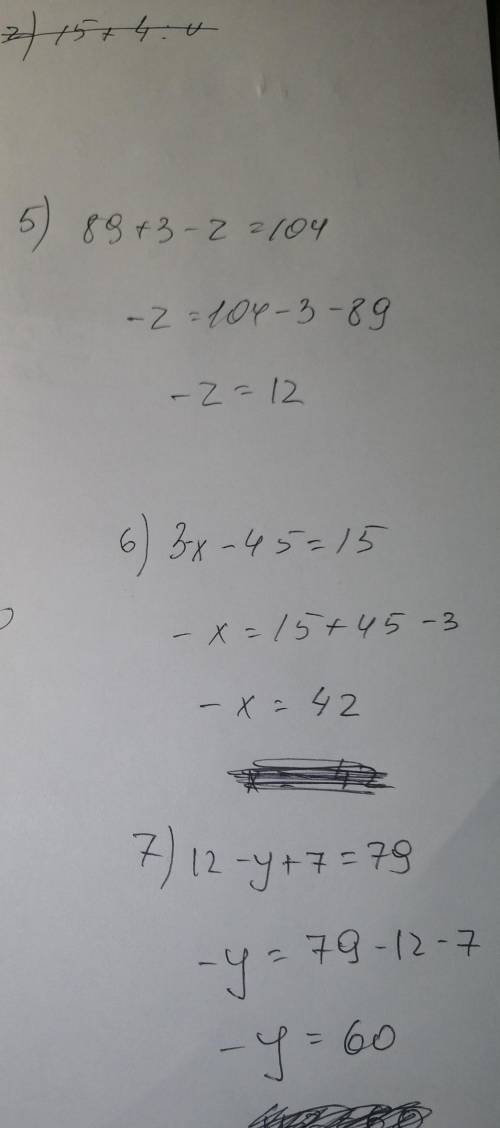 2) 15 + 4 : 
5) 89 + 3 - z = 104
- z = 104 - 3 - 89
- z = 12
6) 3x - 45 = 15
- x = 15 + 45 - 3
- x = 42
x = 42
7) 12 - y + 7 = 79
- y = 79 - 12 - 7
- y = 60